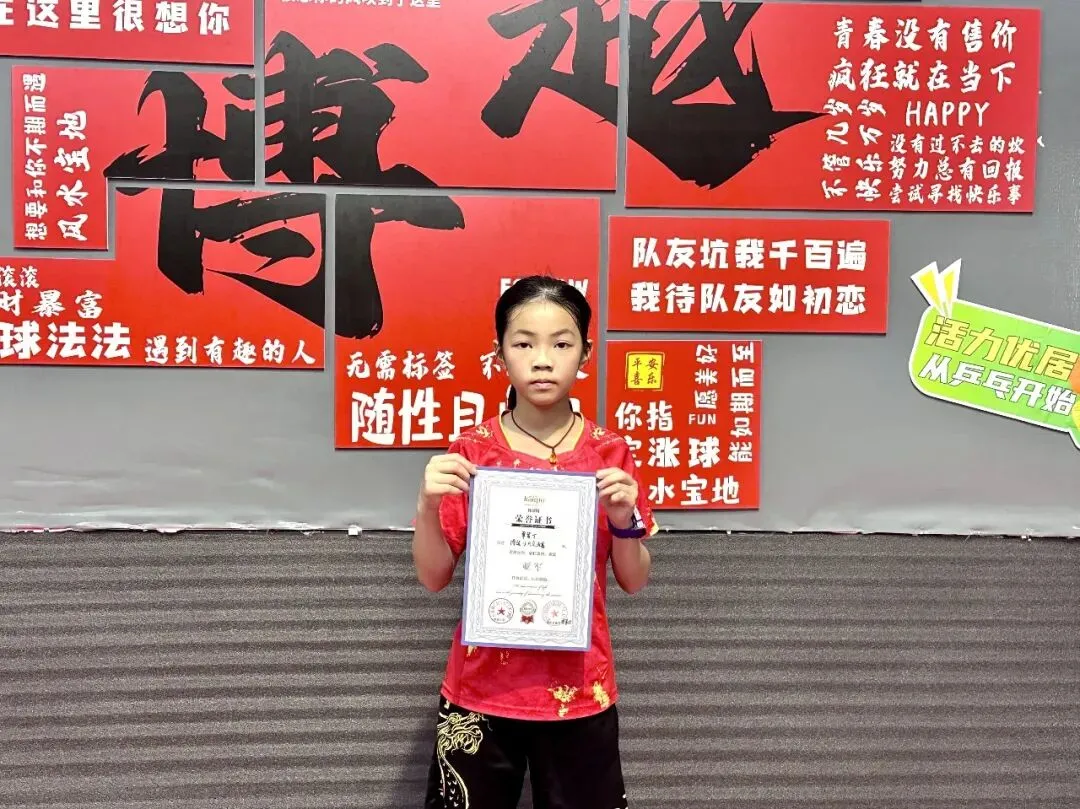 在这里很想你
青春没有售价
疯狂就在当下
HAPPY
没有过不去的坎
努力总有回报
尝试寻找快乐事
不管几岁
快乐万岁
想要和你不期而遇
风水宝地
博
越
滚滚
财暴富
球法法
遇到有趣的人
无需标签
随性
队友坑我千百遍
我待队友如初恋
平安
喜乐
愿美好
FUN
能如期而至
你指
涨球
水宝地
活力优居
从乒乓开始
荣誉证书